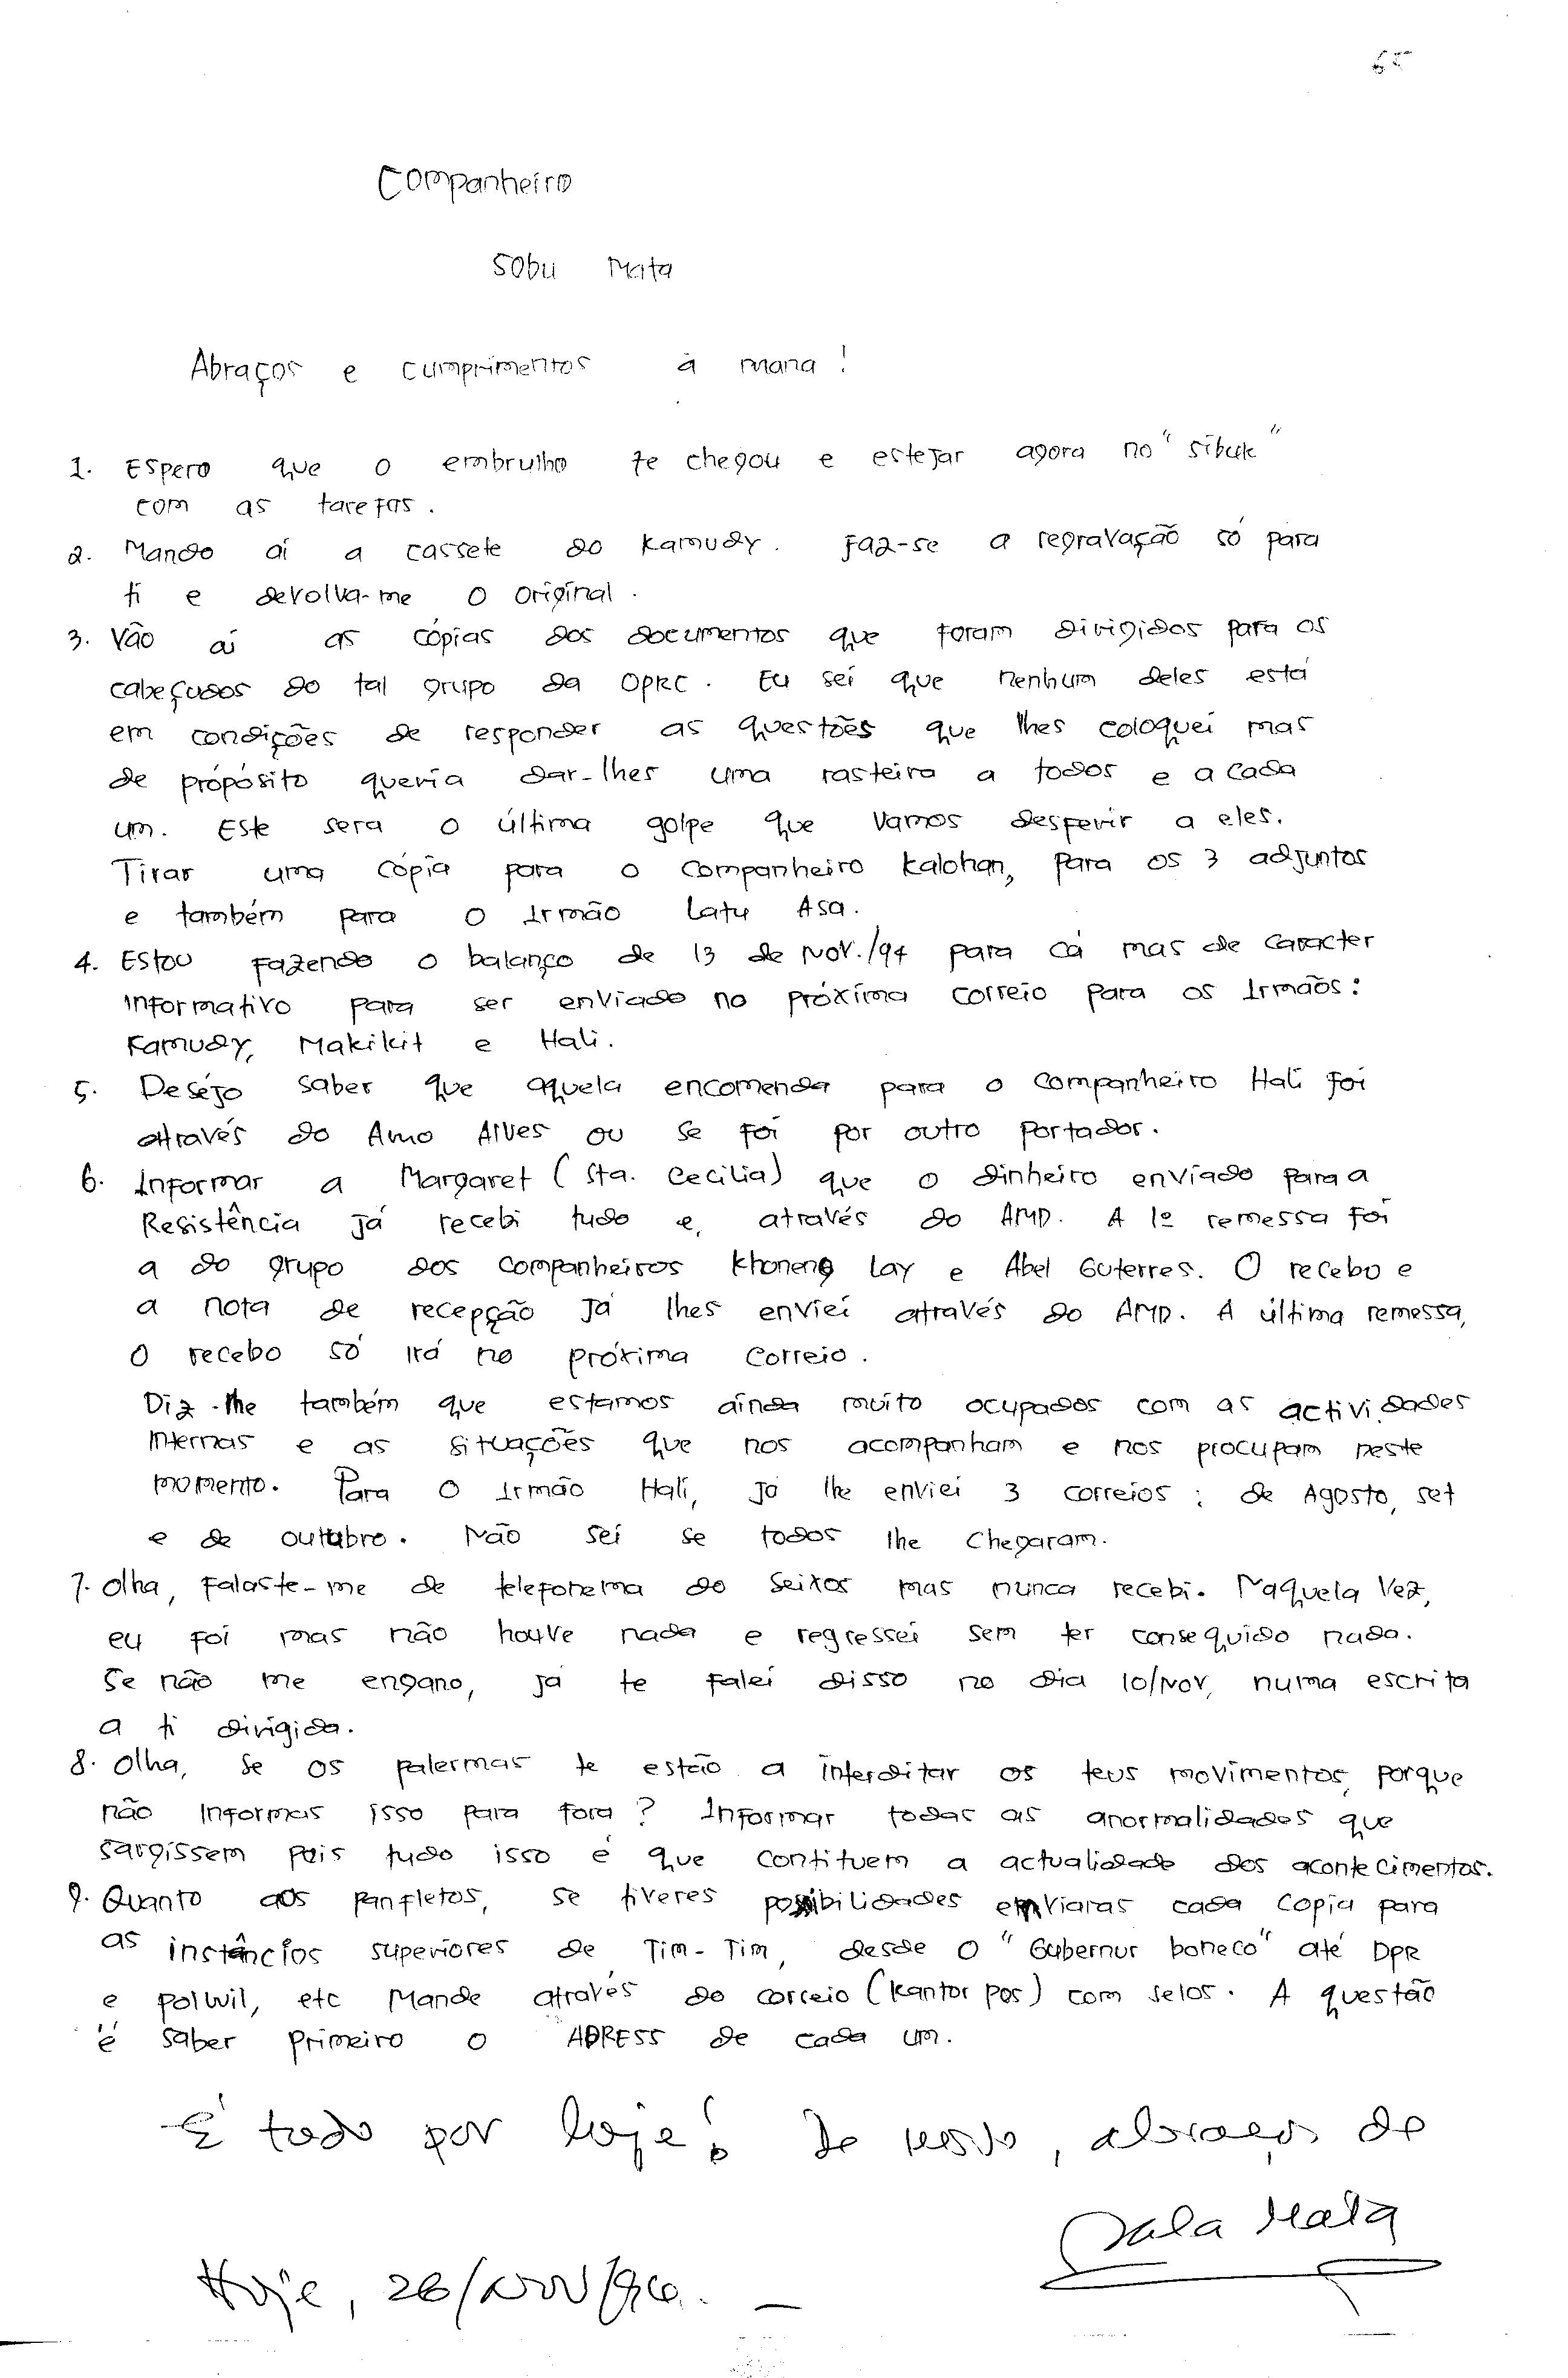 65
Companheiro
Sobu Mata
Abraços e cumprimentos à mana !
1. Espero que o embrulho te chegou e estejar agora no "sibuk"
com as tarefas.
2. Mando aí a cassete do Kamudy. Faz-se a regravação só para
ti e devolva-me o original.
3. Vão aí as cópias dos documentos que foram dirigidos para os
cabeçudos do tal grupo da OPRC. Eu sei que nenhum deles está
em condições de responder as questões que lhes coloquei mas
de própósito queria dar-lhes uma rasteira a todos e a cada
um. Este sera o última golpe que vamos desferir a eles.
Tirar uma cópia para o companheiro Kalohan, para os 3 adjuntos
e também para o Irmão Latu Asa.
4. Estou fazendo o balanço de 13 de Nov./94 para cá mas de caracter
informativo para ser enviado no próxima correio para os Irmãos:
Kamudy, Makikit e Hali.
5. Desejo saber que aquela encomenda para o companheiro Hali foi
através do Amo Alves ou se foi por outro portador.
6. Informar a Margaret (Sta. Cecilia) que o dinheiro enviado para a
Resistência já recebi tudo e, através do AMD. A 1º remessa foi
a do grupo dos companheiros Khoneng Lay e Abel Guterres. O recebo e
a nota de recepção já lhes enviei através do AMD. A última remessa,
o recebo só irá no próxima correio.
Diz-lhe também que estamos ainda muito ocupados com as actividades
internas e as situações que nos acompanham e nos procupam neste
momento. Para o Irmão Hali, já lhe enviei 3 correios : de Agosto, set
e de outubro. Não sei se todos lhe chegaram.
7. Olha, falaste-me de telefonema do Seixos mas nunca recebi. Naquela vez,
eu foi mas não houve nada e regressei sem ter conseguido nada.
Se não me engano, já te falei disso no dia 10/Nov, numa escrita
a ti dirigida.
8. Olha, se os palermas te estão a interditar os teus movimentos, porque
não informas isso para fora ? Informar todas as anormalidades que
sargissem pois tudo isso é que contituem a actualidade dos acontecimentos.
9. Quanto aos panfletos, se tiveres possibilidades enviaras cada copia para
as instâncios superiores de Tim-Tim, desde o "Gubernur boneco" até DPR
e polwil, etc Mande através do correio (kantor pos) com selos. A questão
é saber primeiro o ADRESS de cada um.
É tudo por hoje! De resto, abraços do
Sala Mata
Hoje, 26/Nov/94. —